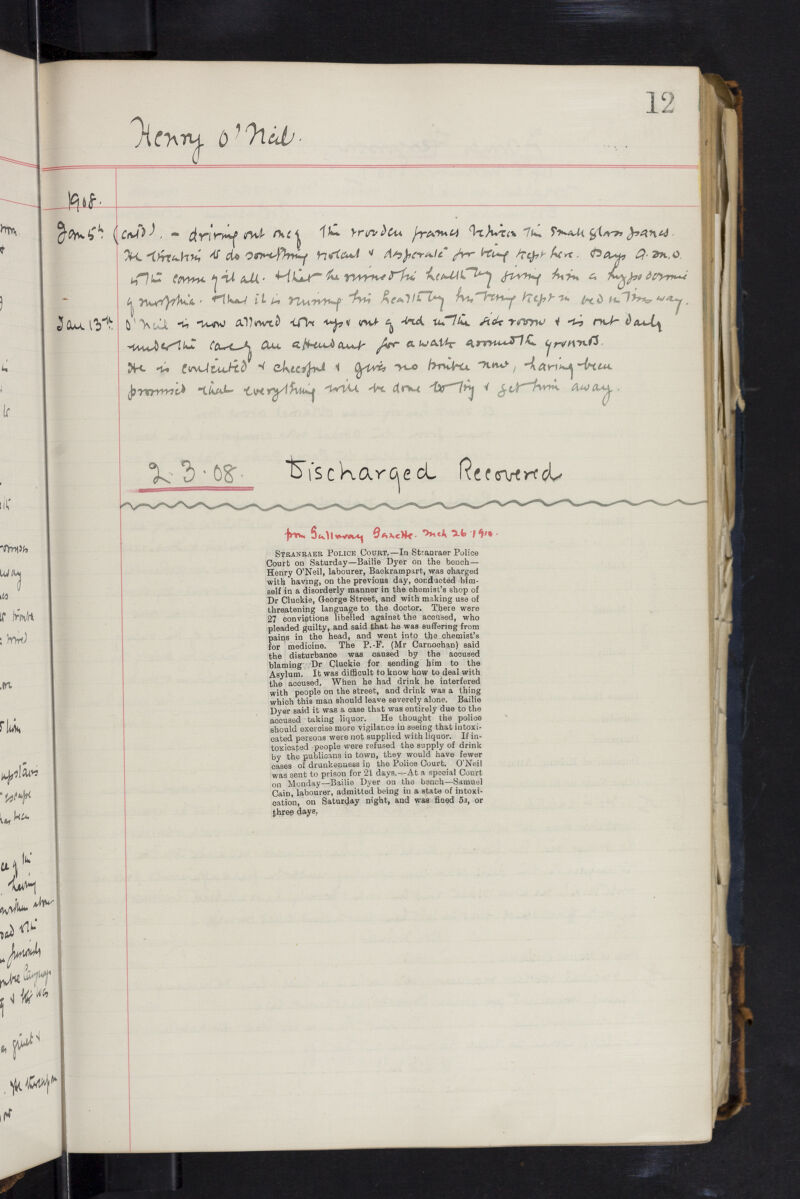 12
Henry O'Neil.
1908.
Jan 5th (contd). - driving out one of the wooden frames between the small glass panes.
He threatens to do something violent & desperate for being kept here. Says A.M.O.
is the cause of it all. & that he ruined his health by giving him a hypodermic
of morphia. & that it is ruining his health by his being kept in bed in this way.
Jan 13th O'Neil is now allowed to be up & out of bed in the side room & is out daily
under the care of an attendant for a walk around the grounds.
He is contented & cheerful & gives no trouble now, having been
promised that everything will be done to try & get him away.
2.3.08. Discharged Recovered
from Galloway Gazette. Mch 26 1910.
STRANRAER POLICE COURT.—In Stranraer Police
Court on Saturday—Bailie Dyer on the bench—
Henry O'Neil, labourer, Backrampart, was charged
with having, on the previous day, conducted him-
self in a disorderly manner in the chemist's shop of
Dr Cluckie, George Street, and with making use of
threatening language to the doctor. There were
27 convictions libelled against the accused, who
pleaded guilty, and said that he was suffering from
pains in the head, and went into the chemist's
for medicine. The P.-F. (Mr Carnochan) said
the disturbance was caused by the accused
blaming Dr Cluckie for sending him to the
Asylum. It was difficult to know how to deal with
the accused. When he had drink he interfered
with people on the street, and drink was a thing
which this man should leave severely alone. Bailie
Dyer said it was a case that was entirely due to the
accused taking liquor. He thought the police
should exercise more vigilance in seeing that intoxi-
cated persons were not supplied with liquor. If in-
toxicated people were refused the supply of drink
by the publicans in town, they would have fewer
cases of drunkenness in the Police Court. O'Neil
was sent to prison for 21 days.—At a special Court
on Monday—Bailie Dyer on the bench—Samuel
Cain, labourer, admitted being in a state of intoxi-
cation, on Saturday night, and was fined 5s, or
three days.